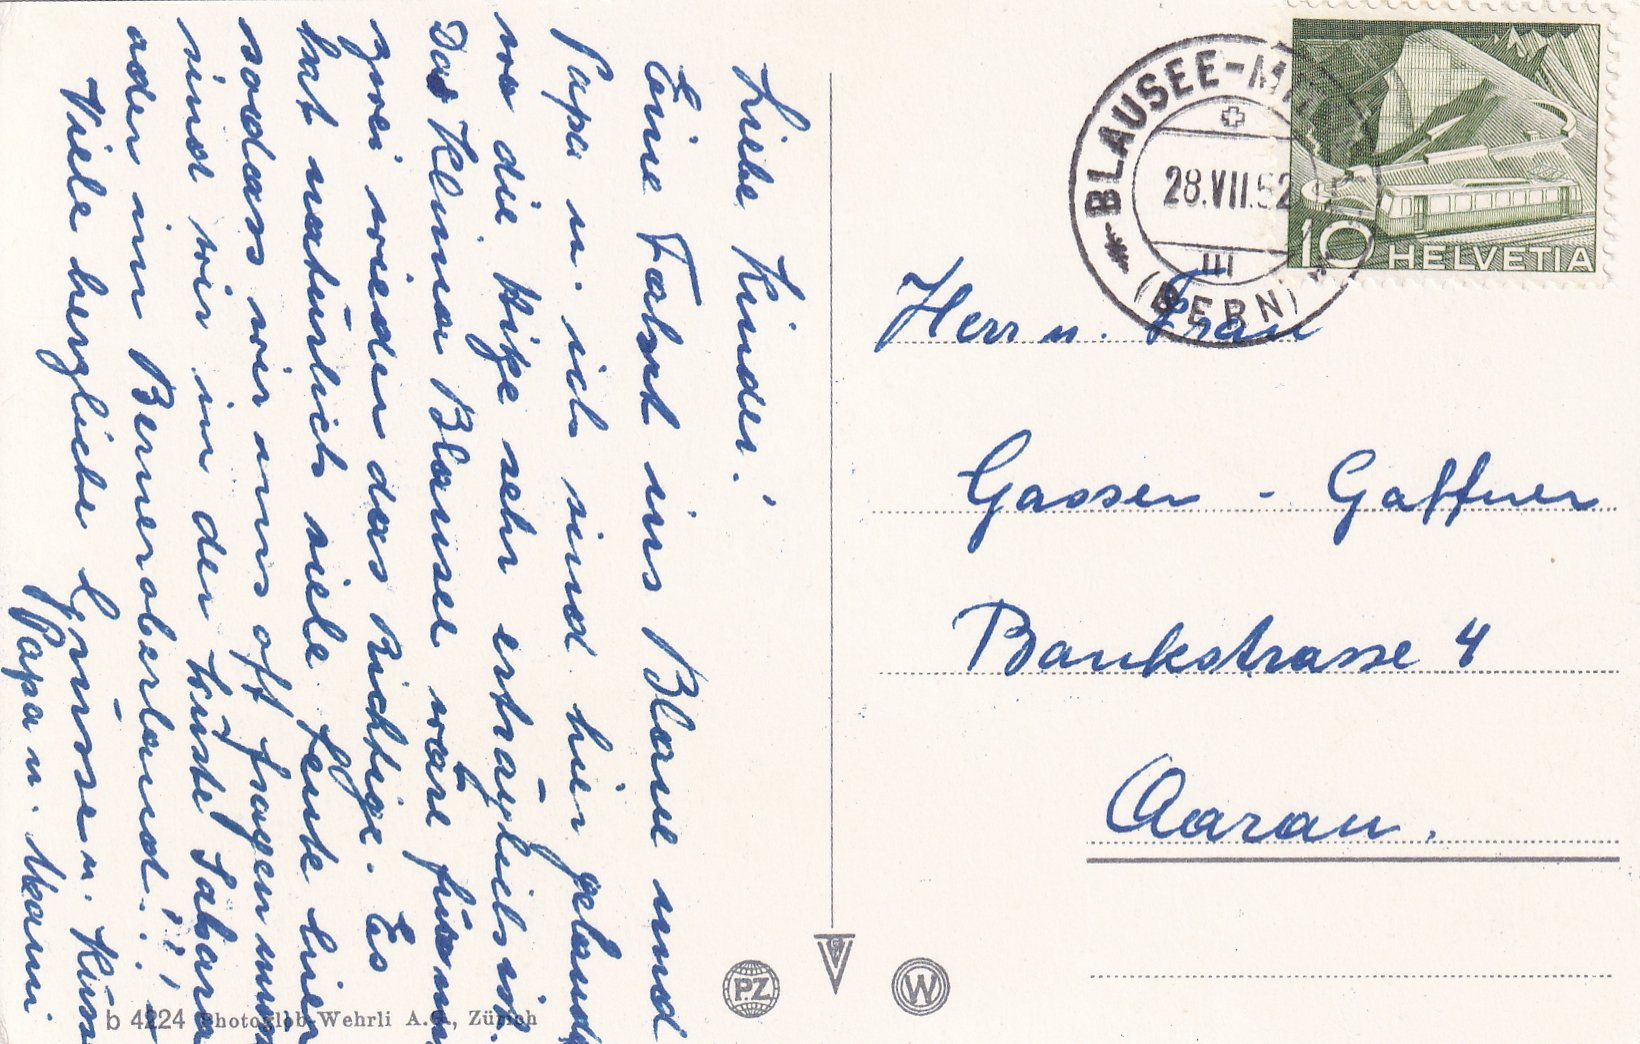 Liebe Kinder!
Eine Fahrt ins Blaue und
Papa u. ich sind hier gelandet
wo die Hitze sehr erträglich ist.
Das Klima Blausee wäre für uns
zwei wieder das Richtige. Es
hat natürlich viele Leute hier
sodass wir uns oft fragen müssen
sind wir in der Wüste Sahara
oder im Berneroberland!!!
Viele herzliche Grüsse u. Küsse
Papa u. Mami
b 4224 Photoglob-Wehrli A.G., Zürich
PZ
W
BLAUSEE-MI
28.VII.52
III
(BERN)
10 HELVETIA
Herr u. Frau
Gasser - Gaffner
Bankstrasse 4
Aarau.